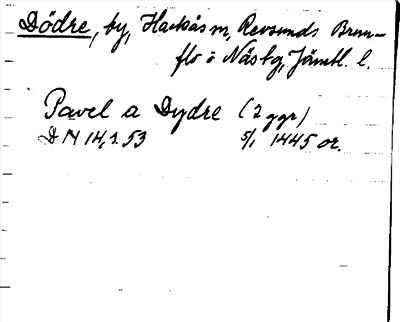 Dödre, by, Hackås sn, Revsunds Brun-
flo o Näs tg, Jämtl. l.
Pavel a Dydre (2 ggr)
DN 14,1.53 5/1 1445 or.